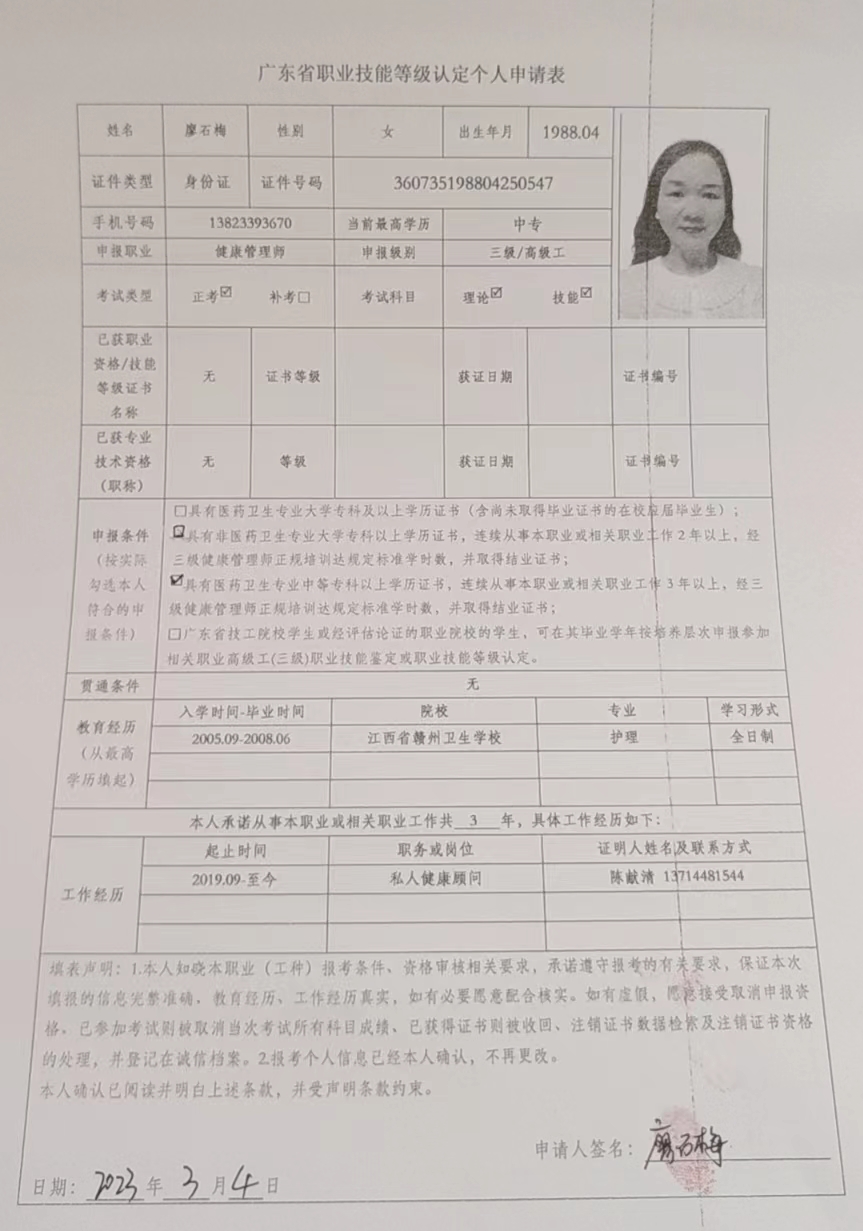 广东省职业技能等级认定个人申请表
姓名 廖石梅 性别 女 出生年月 1988.04
证件类型 身份证 证件号码 360735198804250547
手机号码 13823393670 当前最高学历 中专
申报职业 健康管理师 申报级别 三级/高级工
考试类型 正考☑ 补考□ 考试科目 理论☑ 技能☑
已获职业
资格/技能
等级证书
名称
无 证书等级 获证日期 证书编号
已获专业
技术资格
(职称)
无 等级 获证日期 证书编号
申报条件
(按实际
勾选本人
符合的申
报条件)
□具有医药卫生专业大学专科及以上学历证书(含尚未取得毕业证书的在校应届毕业生);
□具有非医药卫生专业大学专科以上学历证书,连续从事本职业或相关职业工作2年以上,经
三级健康管理师正规培训达规定标准学时数,并取得结业证书;
☑具有医药卫生专业中等专科以上学历证书,连续从事本职业或相关职业工作3年以上,经三
级健康管理师正规培训达规定标准学时数,并取得结业证书;
□广东省技工院校学生或经评估论证的职业院校的学生,可在其毕业学年按培养层次申报参加
相关职业高级工(三级)职业技能鉴定或职业技能等级认定。
贯通条件 无
教育经历
(从最高
学历填起)
入学时间-毕业时间 院校 专业 学习形式
2005.09-2008.06 江西省赣州卫生学校 护理 全日制
本人承诺从事本职业或相关职业工作共 3 年,具体工作经历如下:
工作经历
起止时间 职务或岗位 证明人姓名及联系方式
2019.09-至今 私人健康顾问 陈献清 13714481544
填表声明:1.本人知晓本职业(工种)报考条件、资格审核相关要求,承诺遵守报考的有关要求,保证本次
填报的信息完整准确、教育经历、工作经历真实,如有必要愿意配合核实。如有虚假,愿意接受取消申报资
格、已参加考试则被取消当次考试所有科目成绩、已获得证书则被收回、注销证书数据检索及注销证书资格
的处理,并登记在诚信档案。2.报考个人信息已经本人确认,不再更改。
本人确认已阅读并明白上述条款,并受声明条款约束。
申请人签名: 廖石梅
日期: 2023 年 3 月 4 日